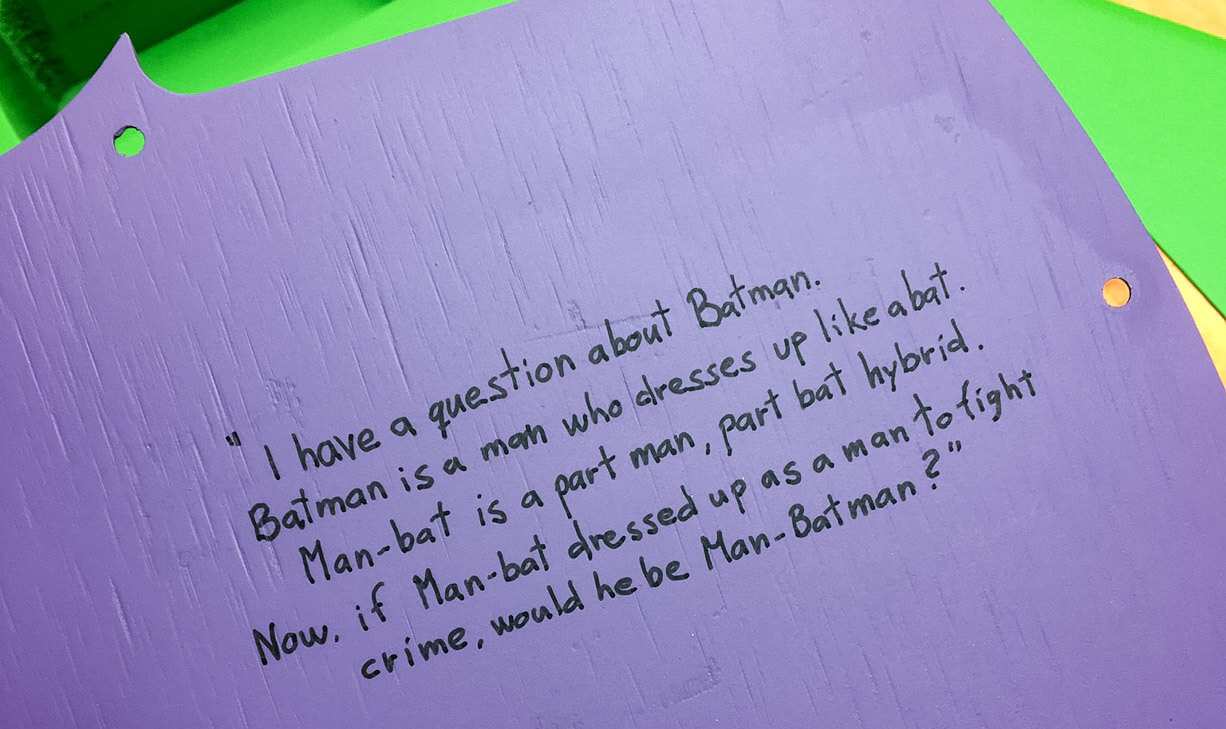 " I have a question about Batman.
Batman is a man who dresses up like a bat.
Man-bat is a part man, part bat hybrid.
Now, if Man-bat dressed up as a man to fight
crime, would he be Man-Batman?"